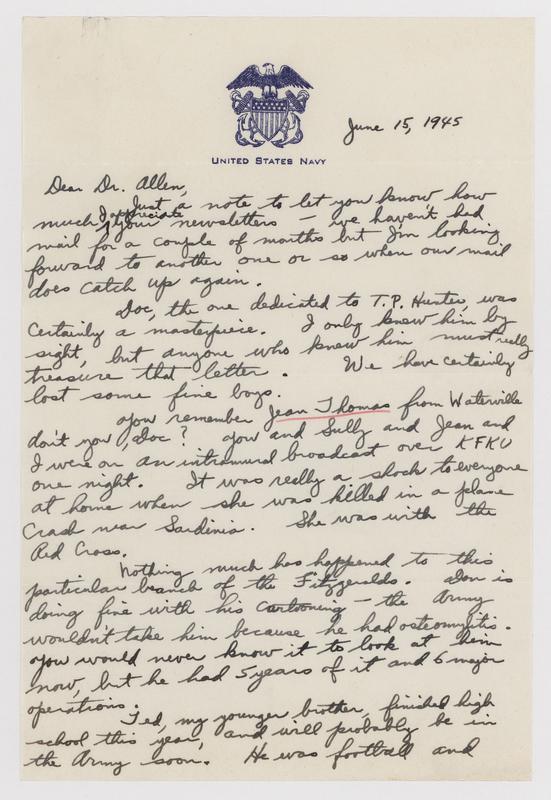 June 15, 1945
UNITED STATES NAVY
Dear Dr. Allen,
Just a note to let you know how
much I appreciate your newsletters — we haven't had
mail for a couple of months but I'm looking
forward to another one or so when our mail
does catch up again.
Doc, the one dedicated to T.P. Hunter, was
certainly a masterpiece. I only knew him by
sight, but anyone who knew him must really
treasure that letter. We have certainly
lost some fine boys.
You remember Jean Thomas from Waterville
don't you, Doc? You and Sully and Jean and
I were on an intramural broadcast over KFKU
one night. It was really a shock to everyone
at home when she was killed in a plane
crash near Sardinia. She was with the
Red Cross.
Nothing much has happened to this
particular branch of the Fitzgeralds. Don is
doing fine with his cartooning — the Army
wouldn't take him because he had osteomyitis.
You would never know it to look at him
now, but he had 5 years of it and 6 major
operations.
Ted, my younger brother, finished high
school this year, and will probably be in
the Army soon. He was football and